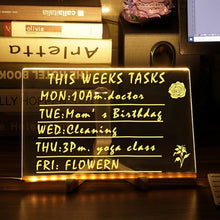 callatutta
THIS WEEKS TASKS
MON:10AM.doctor
TUE:Mom's Birthday
WED:Cleaning
THU:3Pm. yoga class
FRI: FLOWERN